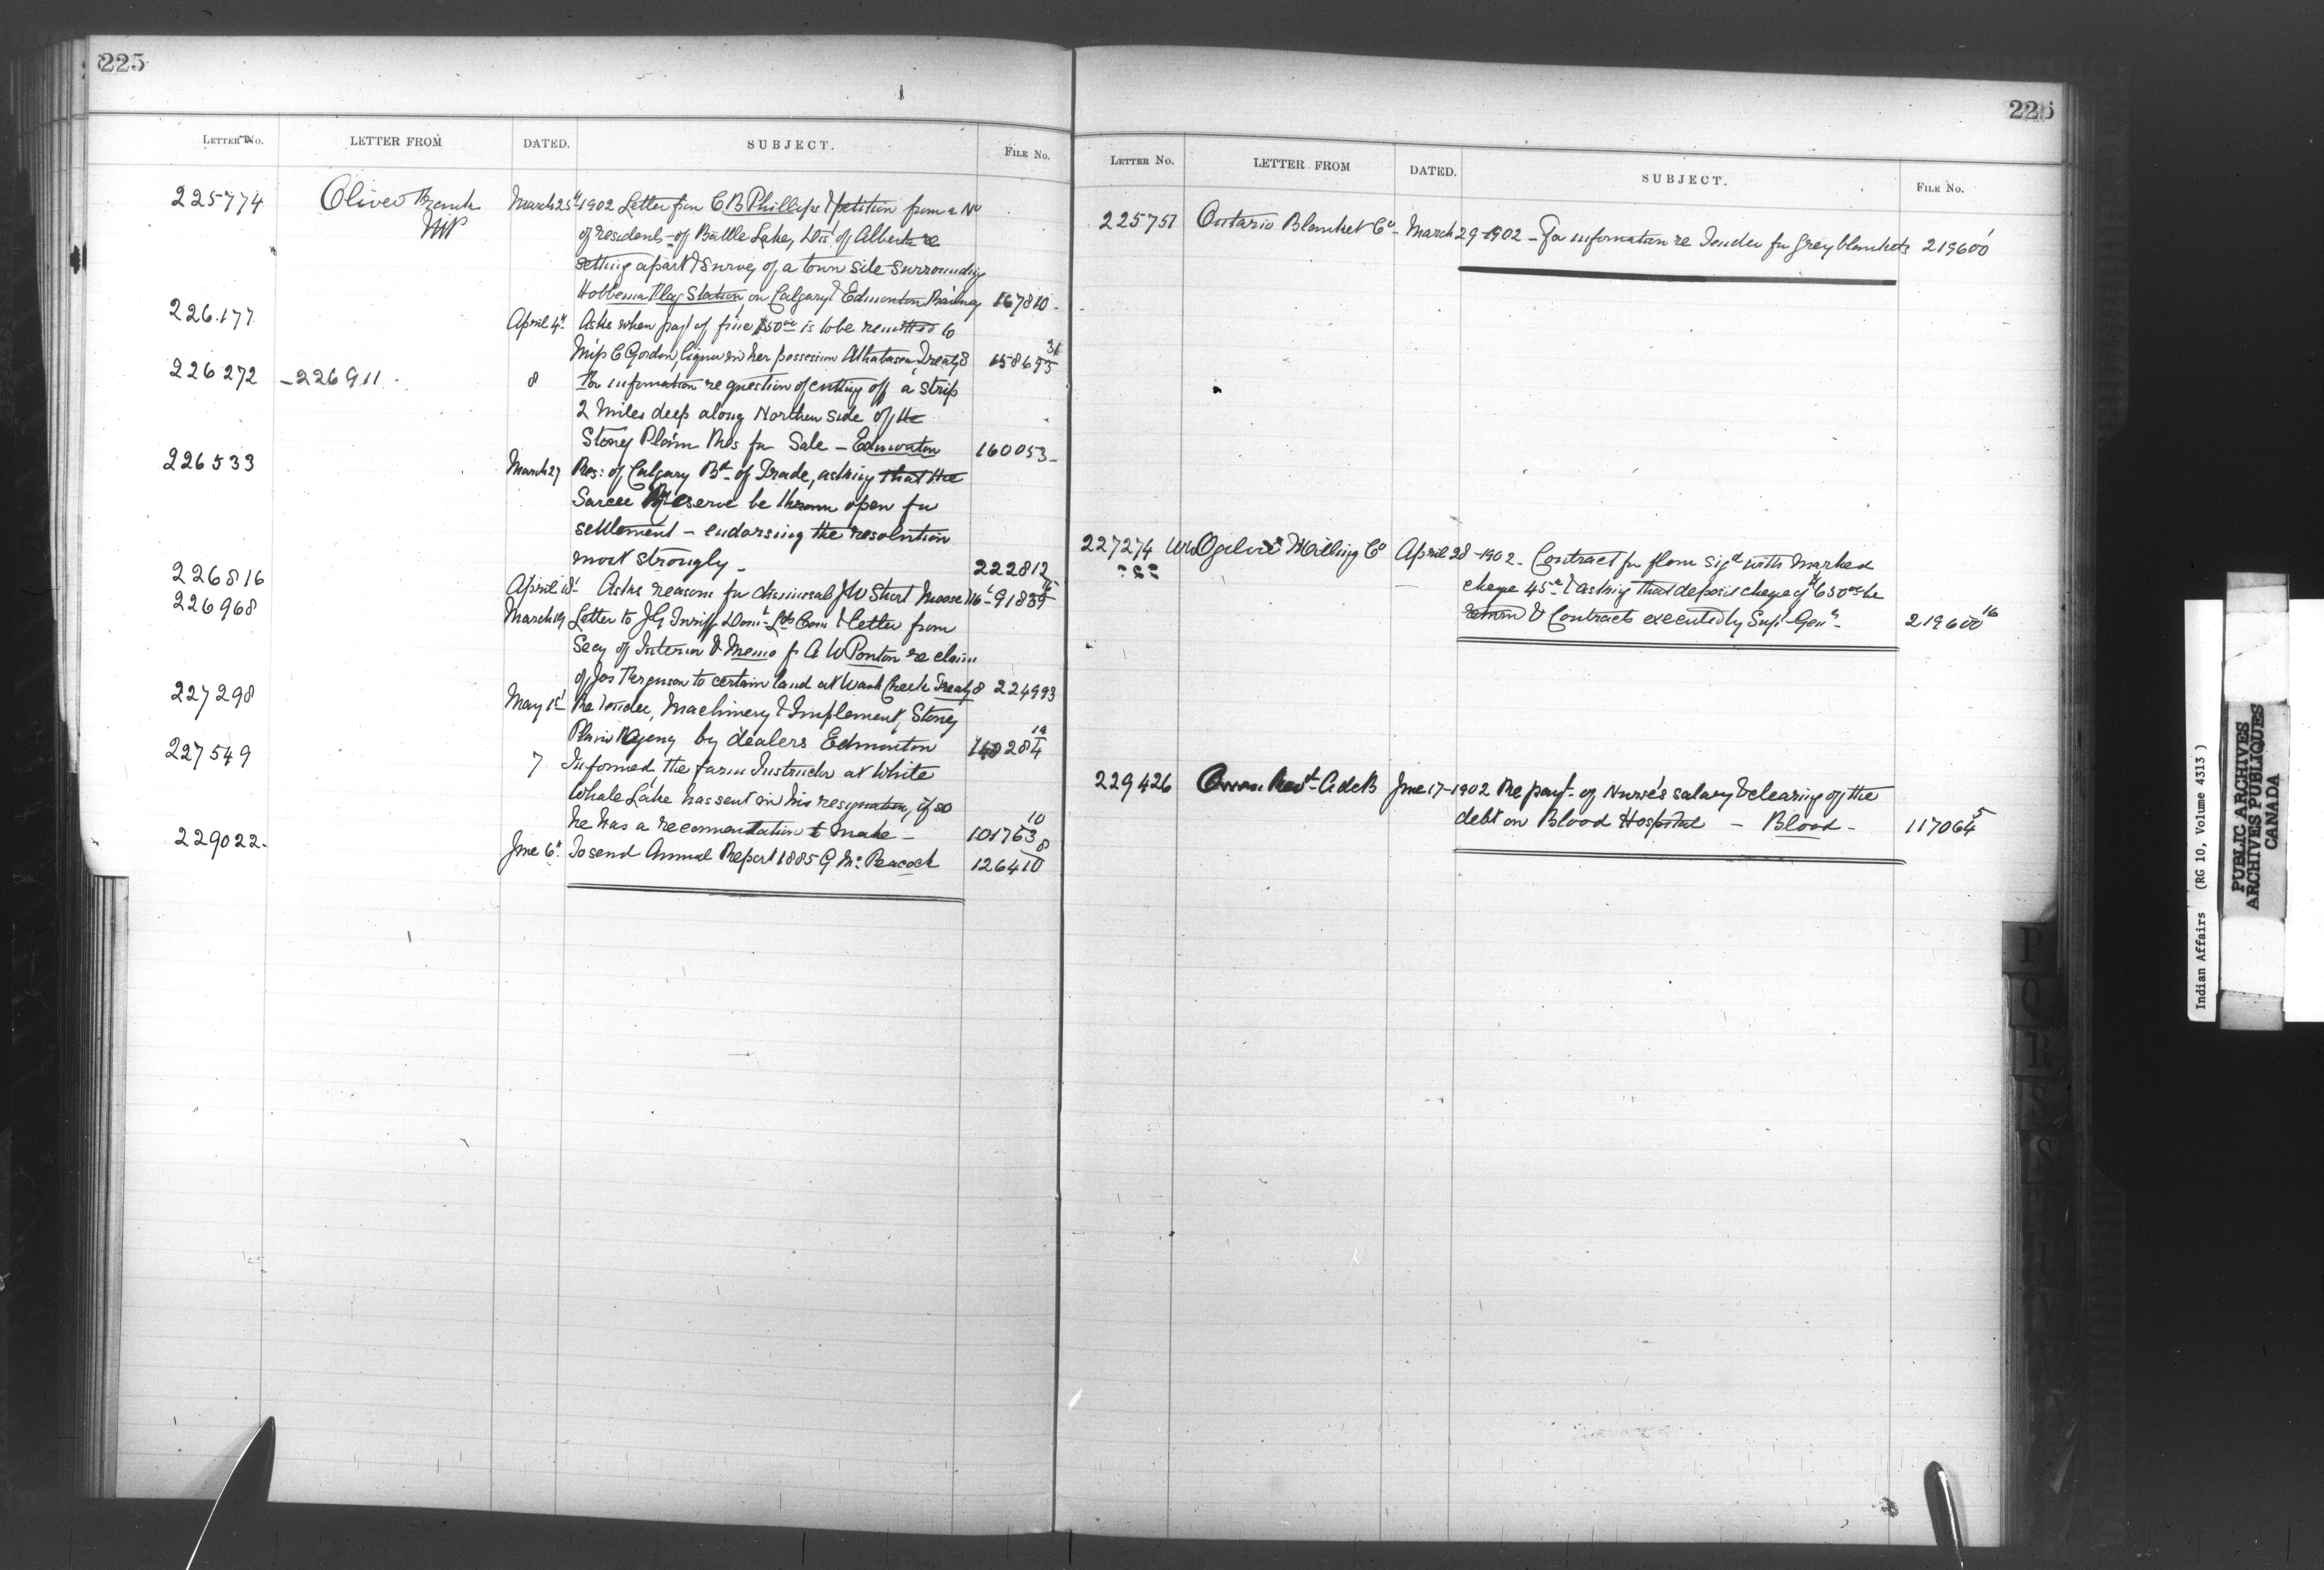 225
LETTER No. LETTER FROM DATED. SUBJECT. FILE No.
225774 Oliver Frank March 25th 1902 Letter from C B Phillips & petition from a No
MP of residents of Battle Lake, Dis. of Alberta re
setting apart & survey of a town site surrounding
Hobbema Flag Station, on Calgary & Edmonton Railway 167810 -
226.177 April 4th Asks when part of fine $50 00 is to be remitted to
C Gordon, liquor in her possession Athabasca, Treaty 8 158695 31
226272 - 226911 . 8 For information re question of cutting off a strip
2 Miles deep along Northern side of the
Stoney Plain Res for Sale - Edmonton 160053 -
226533 March 27 Res: of Calgary Bd of Trade, asking that the
Sarcee Reserve be thrown open for
settlement - endorsing the resolution
most strongly - 222812
226816 April 18t Asks reasons for dismissal J W Short Moose Mt - 91839 16
226968 March 19 Letter to J G Turriff Domt Lds Com & letter from
Secy of Interior & Memo fr A W Ponton re claim
of Jas Ferguson to certain land at Creek Treaty 8 224993
227298 May 1st Re Tender, Machinery & Implement, Stoney
Plain Agency by dealers Edmonton 148284 19
227549 7 Informed the farm Instructor at White
Whale Lake has sent in his resignation, if so
he has a recommendation to make - 101763 10
229022. June 6th To send Annual Report 1885 G Mc Peacock 126410 8
226
LETTER No. LETTER FROM DATED. SUBJECT. FILE No.
225751 Ontario Blanket Co - March 29 - 1902 - For information re Tender for grey blankets 219600 1
227274 WW Ogilvie Milling Co April 28 - 1902 - Contract for flour sigd with marked
cheque 45 & asking that deposit cheque of $650 00 be
return & Contracts executed by Supt Genl - 219600 16
229426 Owen Revd A de B June 17 - 1902 Re payt of Nurse's salary & clearing off the
debt on Blood Hospital - Blood - 117064 5
P
Q
R
S
Indian Affairs (RG 10, Volume 4313 )
PUBLIC ARCHIVES
ARCHIVES PUBLIQUES
CANADA